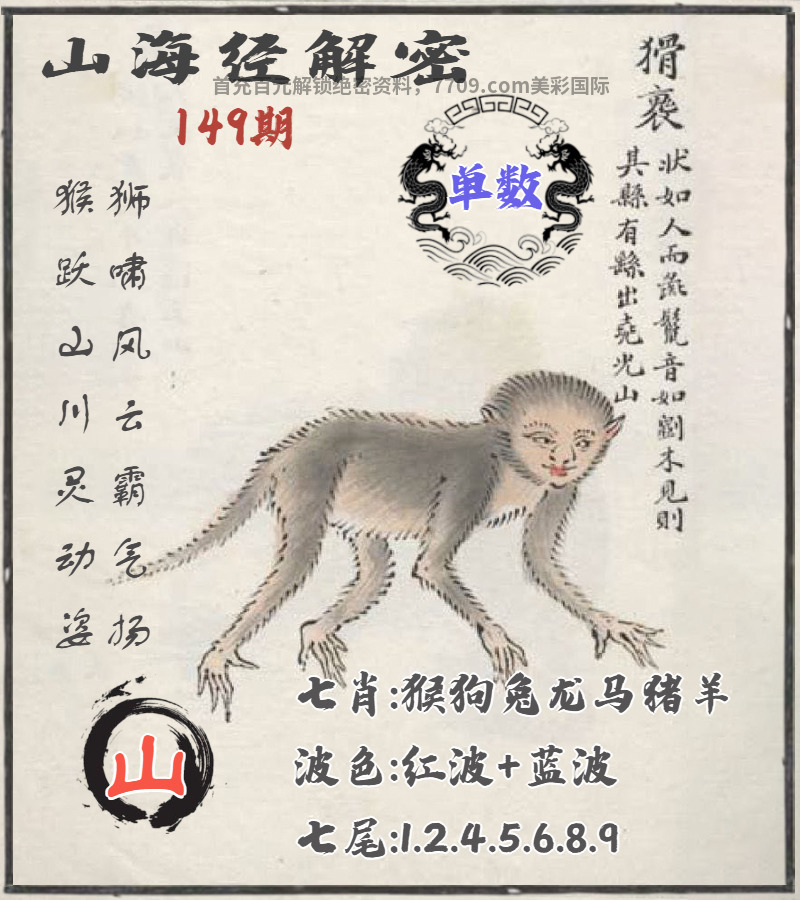 山海经解密
首充百元解锁绝密资料，7709.com美彩国际
149期
单数
猾褱
状如人而彘鬣音如劉木見則
其縣有繇出堯光山
狮啸风云霸气扬
猴跃山川灵动姿
山
七肖:猴狗兔龙马猪羊
波色:红波+蓝波
七尾:1.2.4.5.6.8.9